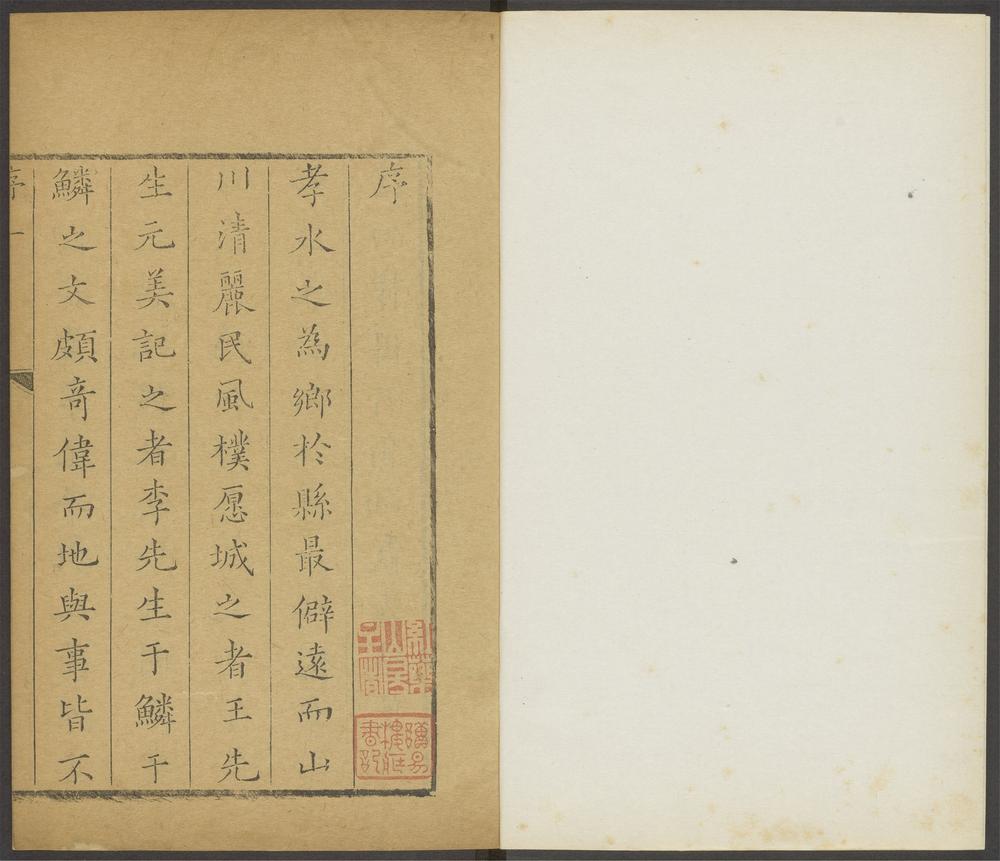 序
孝水之為鄉扵縣最僻遠而山
川清麗民風樸愿城之者王先
生元美記之者李先生于鱗于
鱗之文頗竒偉而地與事皆不
序 一